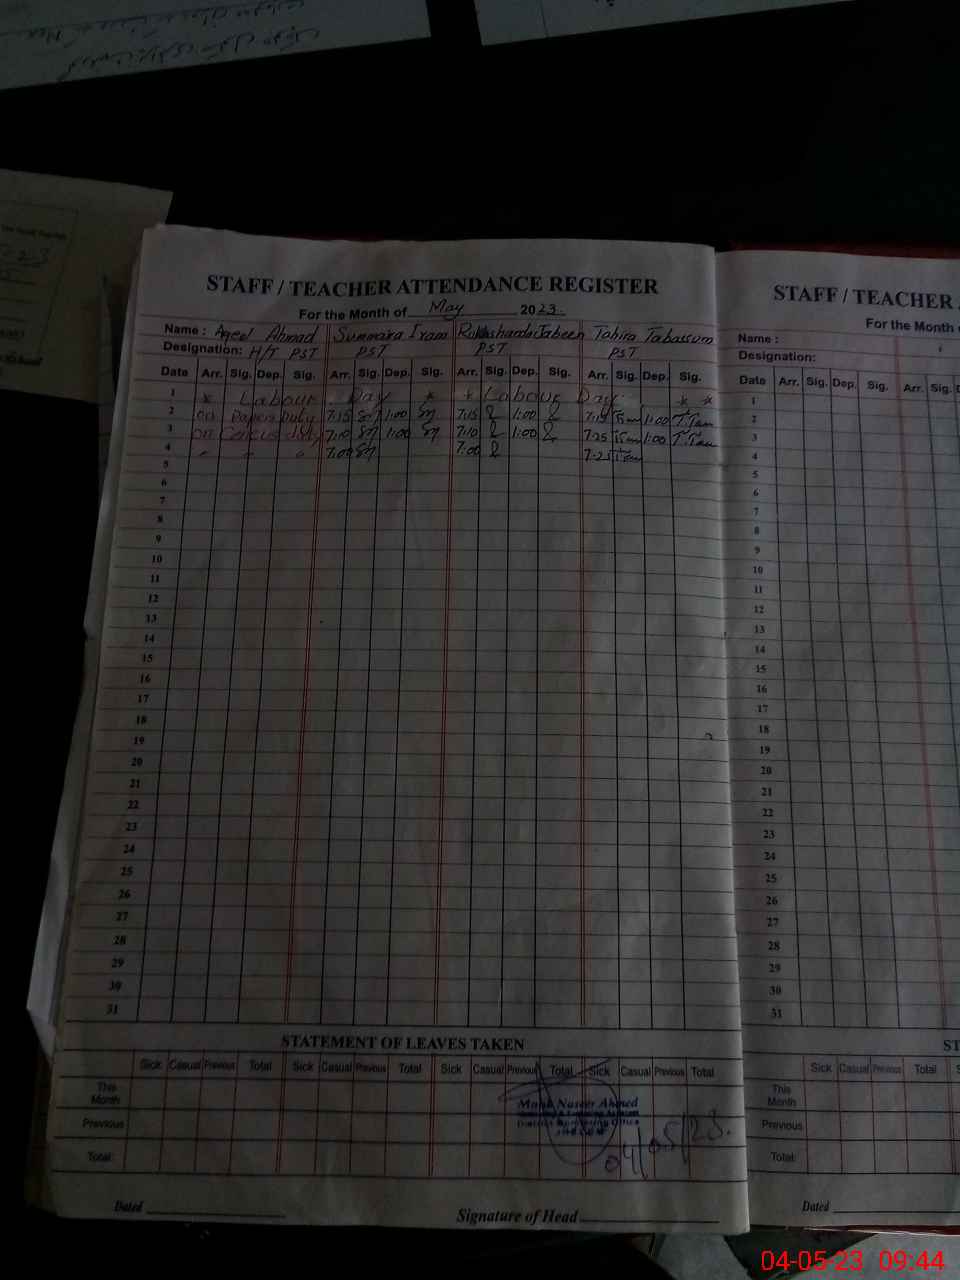 STAFF / TEACHER ATTENDANCE REGISTER
For the Month of May 2023
Name : Aqeel Ahmad Summaira Iram Rukhshanda Jabeen Tahira Tabassum
Designation: H/T PST PST PST PST
Date Arr. Sig. Dep. Sig. Arr. Sig. Dep. Sig. Arr. Sig. Dep. Sig. Arr. Sig. Dep. Sig.
1 * Labour Day * * Labour Day * *
2 on Paper Duty 7:15 1:00 7:15 1:00 7:15 1:00
3 on duty 7:10 1:00 7:10 1:00 7:25 1:00
4 " " " 7:00 7:00 7:25
5
6
7
8
9
10
11
12
13
14
15
16
17
18
19
20
21
22
23
24
25
26
27
28
29
30
31
STATEMENT OF LEAVES TAKEN
Sick Casual Previous Total Sick Casual Previous Total Sick Casual Previous Total Sick Casual Previous Total
This Month
Previous
Total:
Naseer Ahmed
04/05/23.
Dated
Signature of Head
STAFF / TEACHER
For the Month
Name :
Designation:
Date Arr. Sig. Dep. Sig. Arr. Sig.
1
2
3
4
5
6
7
8
9
10
11
12
13
14
15
16
17
18
19
20
21
22
23
24
25
26
27
28
29
30
31
ST
Sick Casual Previous Total
This Month
Previous
Total:
Dated
04-05-23 09:44